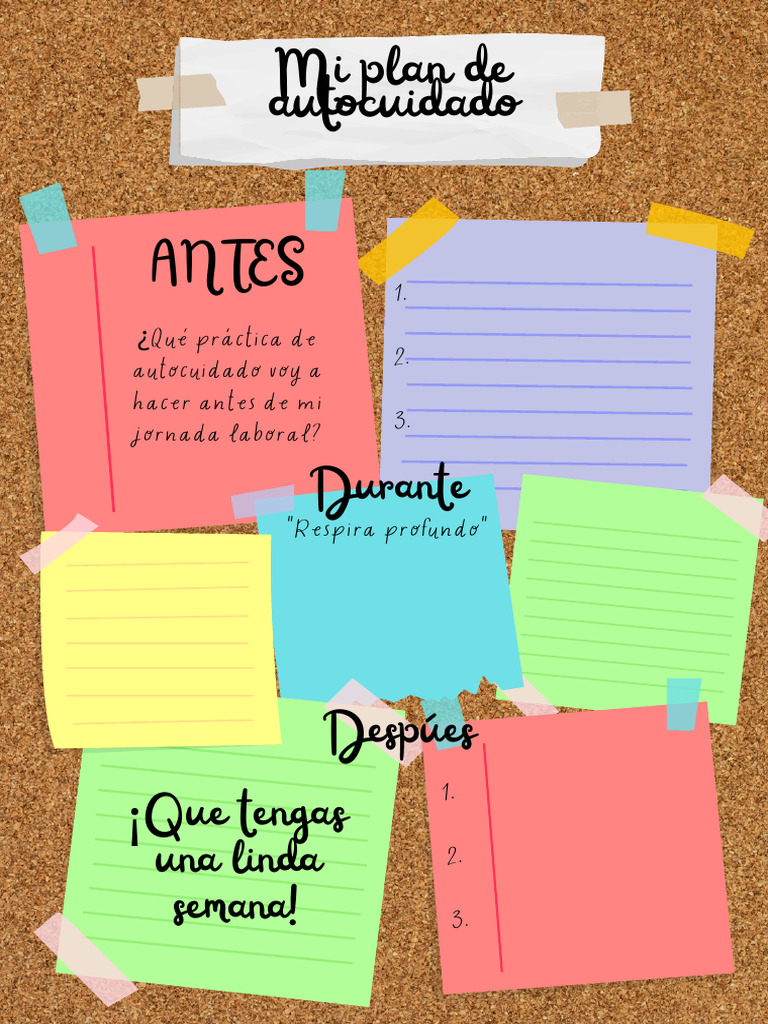 Mi plan de
autocuidado
ANTES
¿Qué práctica de
autocuidado voy a
hacer antes de mi
jornada laboral?
1.
2.
3.
Durante
"Respira profundo"
Despúes
¡Que tengas
una linda
semana!
1.
2.
3.